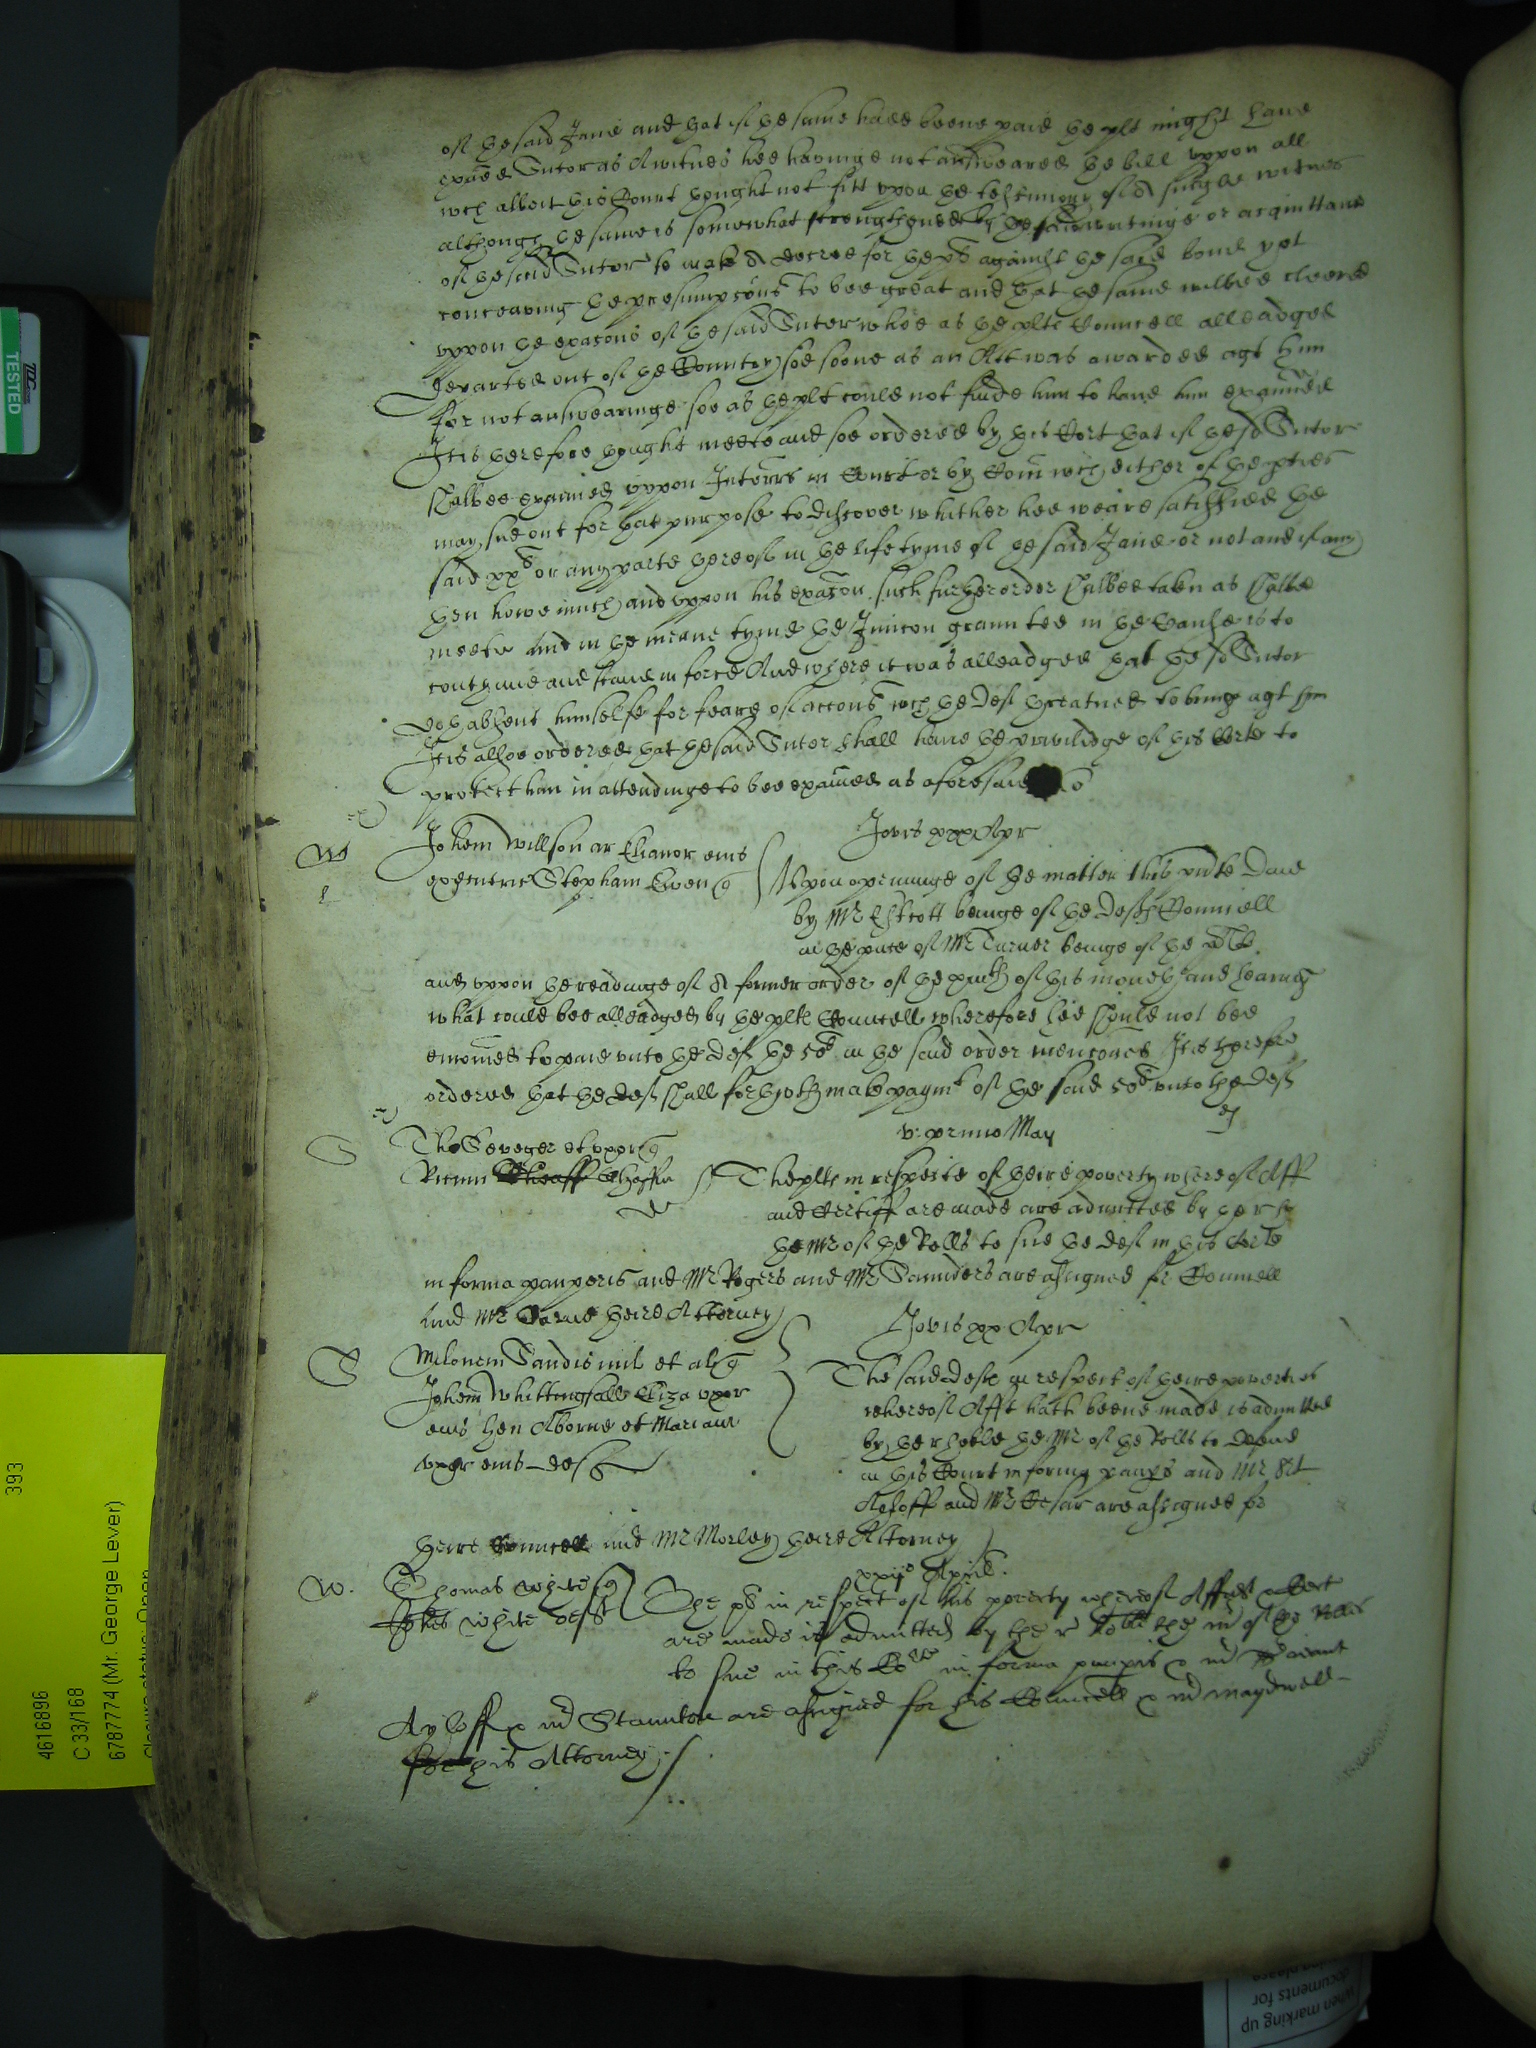 of the said Jane and that if the same had beene paid the plt might have
exaied Sutor as A witnes hee havinge not answeared the bill uppon all
wch albeit this Court thought not fitt upon the testimony of A single witnes
although the same is somewhat strengthened by the said writinge or acquittance
of the said Sutor to make A decree for the pt against the said bond yet
conceaving the presumpcons to bee great and that the same wilbee cleered
uppon the exacons of the said Sutor whoe as the plts Councell alleadged
departed out of the Countrey soe soone as an Att was awarded agt him
for not answearinge soe as the plt could not finde him to have him examined
It is therefore thought meete and soe ordered by this Cort that if the sd Sutor
shalbee examined uppon Interrs in Court or by Com wch either of the pties
may sue out for that purpose to discover whither hee weare satisfied the
said xxl or any parte thereof in the life tyme of the said Jane or not and if any
then howe much and uppon his exacon such further order shalbee taken as shalbe
meete And in the meane tyme the Juncon graunted in the Cause is to
contynue and stand in force And where it was alleadged that the sd Sutor
doth absent himselfe for feare of accons wch the Def threatned to bring agt him
It is alsoe ordered that the said Sutor shall have the priviledge of this Corte to
protect him in attendinge to bee examined as aforesaid
Jovis xxx Apr
Johem Willson ar Elianor eius
executric Stephani Even q
Uppon openinge of the matter this pnte daie
by Mr Estcott beinge of the Defts Councell
in the pnce of Mr Turner beinge of the plts
and uppon the readinge of A former order of the of this moneth and hearing
what could bee alleadged by the plts Councell wherefore hee should not bee
enioined to paie unto the def the 50s in the said order menconed It is therefore
ordered that the def shall forthwth make paymt of the said 50s unto the def
v: primo May
Tho Seveger et uxor q
Ricum Chaffin
def
The plts in respecte of theire poverty whereof Aff
and Certiff are made are admitted by the r h
the Mr of the Rolls to sue the def in this Corte
in forma pauperis and Mr Rogers and Mr Saunders are assigned for Councell
and Mr Carne theire Attorney
Jovis xx Apr
Milonem Sandis mil et al q
Johem Whittingshall Eliza uxor
eius Hen Aborne et Marian
uxor eius def
The said defts in respect of theire povertie
whereof Afft hath beene made is admitted
by the r hoble the Mr of the Rolls to defend
in this Court in forma paupis and Mr Srt
Ayloff and Mr Cesar are assigned for
theire Councell and Mr Morley theire Attorney
W. Thomas White q
Johes White deft
xxijo April.
The pt in respect of his poverty whereof Affid et Cert
are made is admitted by the r hoble the mr of the Rolles
to sue in this Corte in forma paupis & mr Serieant
Ayloff & mr Staunton are assigned for his Councell & mr Maydwell
for his Attorney
TESTED
393
4616896
C 33/168
6787774 (Mr. George Lever)
Closure status: Open
when marking up
documents for